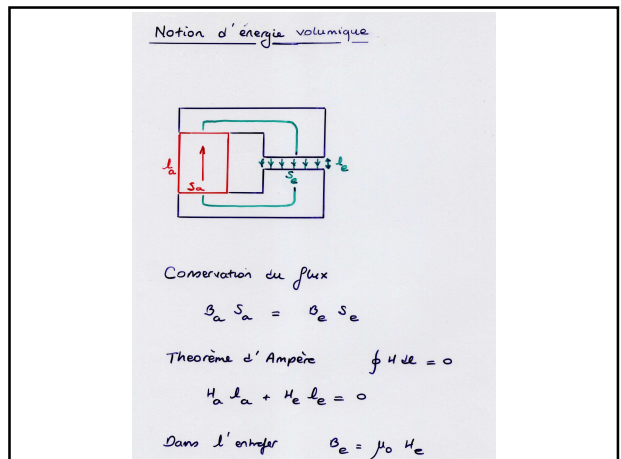 Notion d'énergie volumique
la
Sa
Se
le
Conservation du flux
Ba Sa = Be Se
Theorème d'Ampère ∮ H dl = 0
Ha la + He le = 0
Dans l'entrefer Be = μ0 He